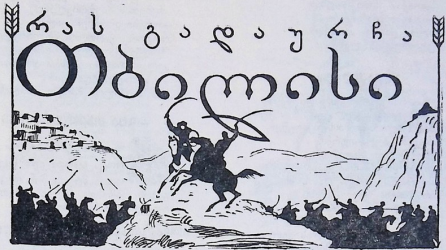 რას გადაურჩა
თბილისი